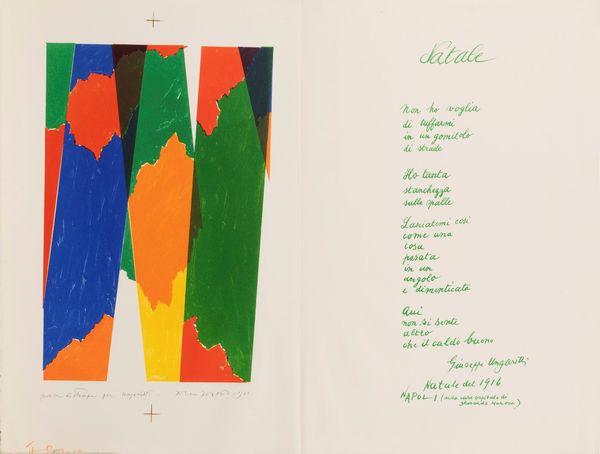 Natale
Non ho voglia
di tuffarmi
in un gomitolo
di strade
Ho tanta
stanchezza
sulle spalle
Lasciatemi così
come una
cosa
posata
in un
angolo
e dimenticata
Qui
non si sente
altro
che il caldo buono
Giuseppe Ungaretti
Natale del 1916
NAPOLI (nella casa ospitale di
prova di stampa per Ungaretti